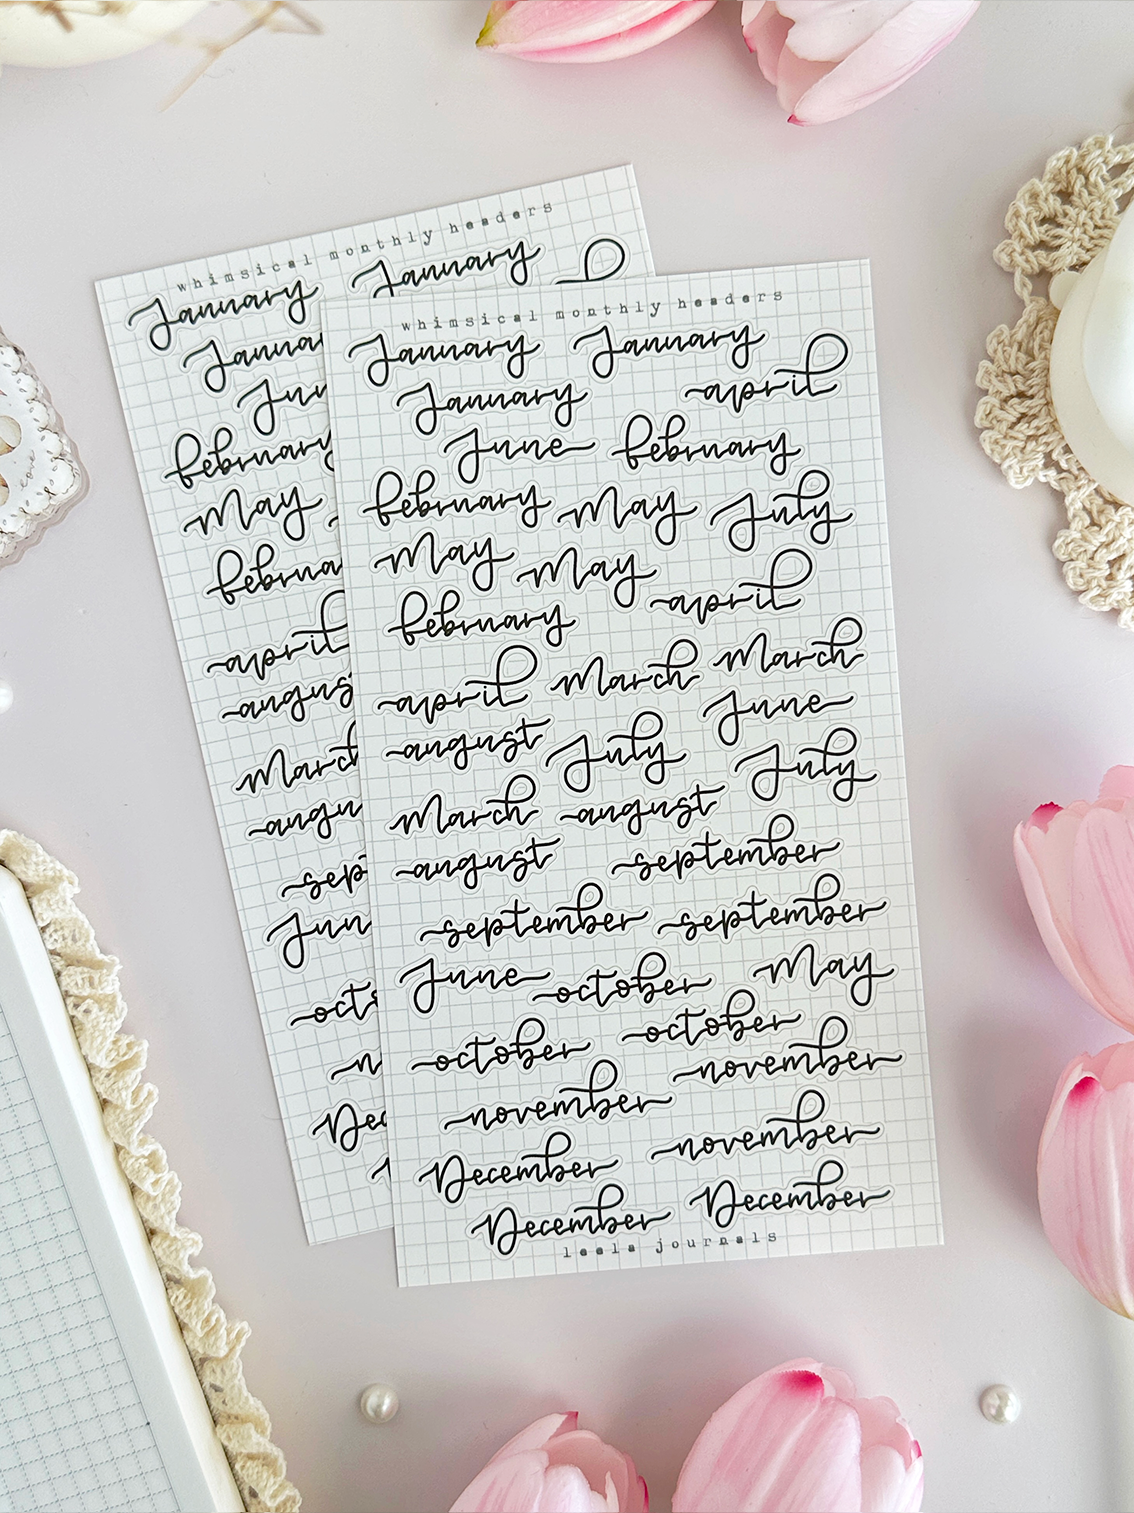 whimsical monthly headers
January January
Januar
Jun
february
May
februa
april
augus
March
augu
sep
Jun
octo
n
Dec
whimsical monthly headers
January January
January april
June february
february May July
May May
february april
april March March
august July June
March august July
august september
september september
June october May
october october
november november
December november
December December
leela journals